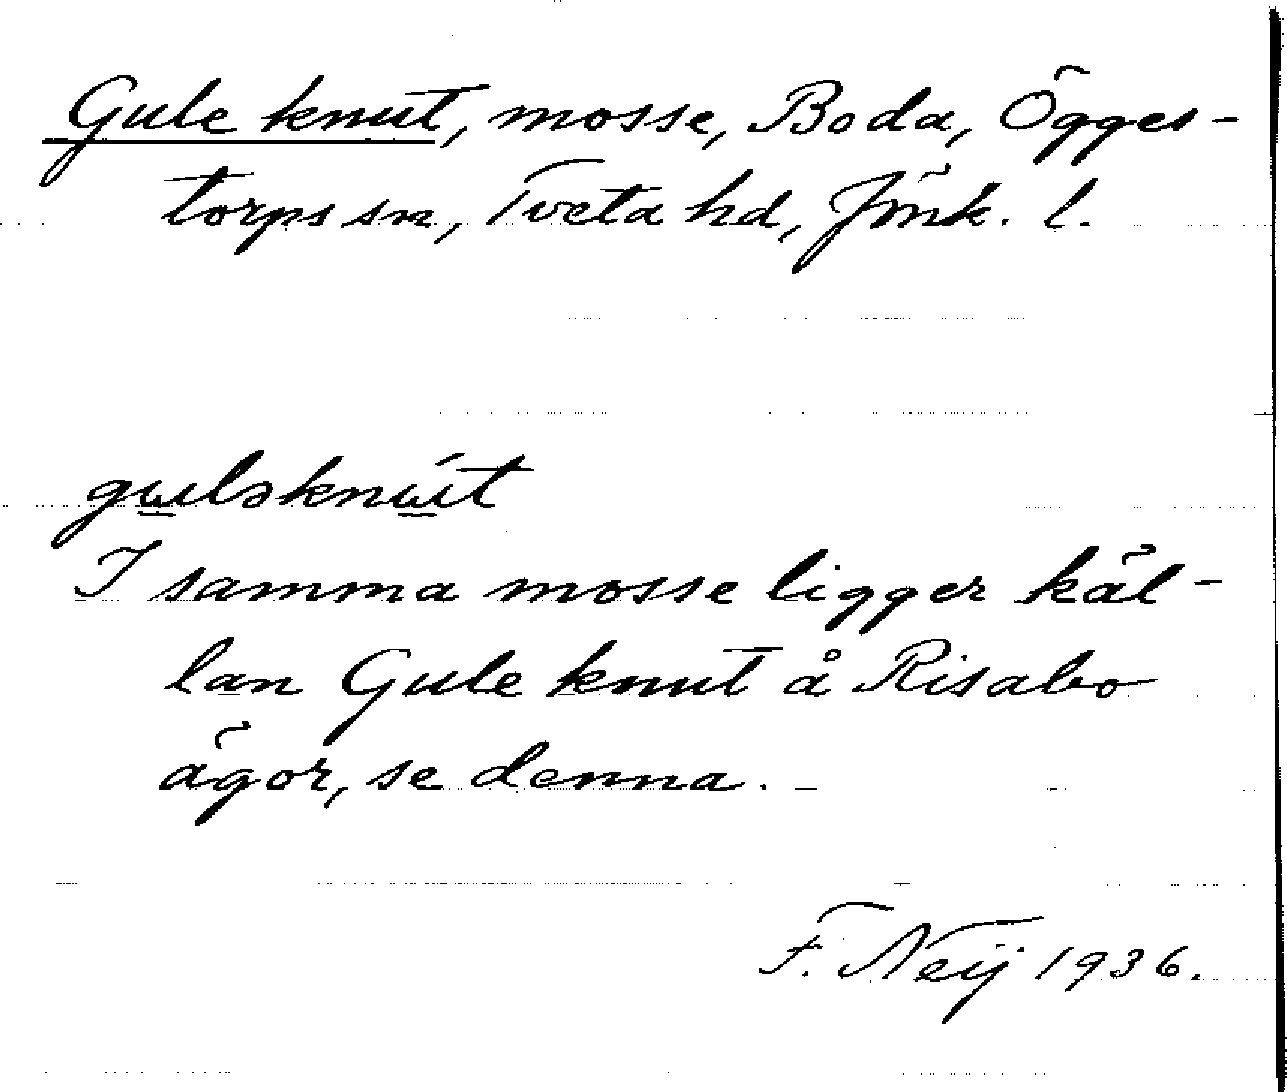 Gule knut, mosse, Boda, Ögges-
torps sn, Tveta hd, Jönk. l.
gɯləknɯ́t
I samma mosse ligger käl-
lan Gule knut å Risabo
ägor, se denna.
F. Neij 1936.